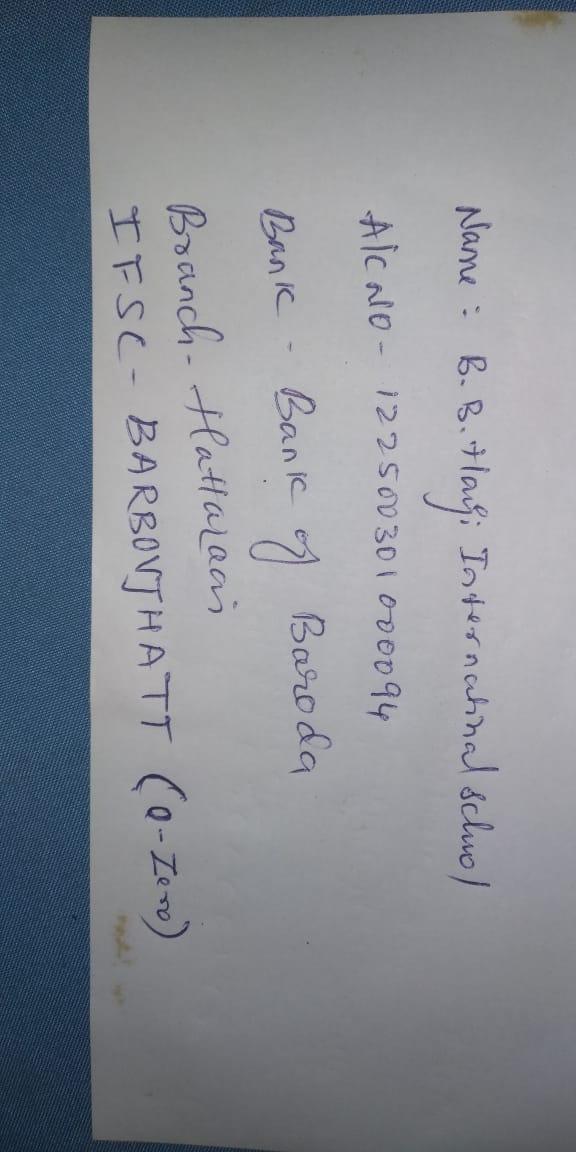 Name : B. B. Haji International school
A/c No - 122500301000094
Bank - Bank of Baroda
Branch - Hattaragi
IFSC - BARB0VJHATT (0-Zero)